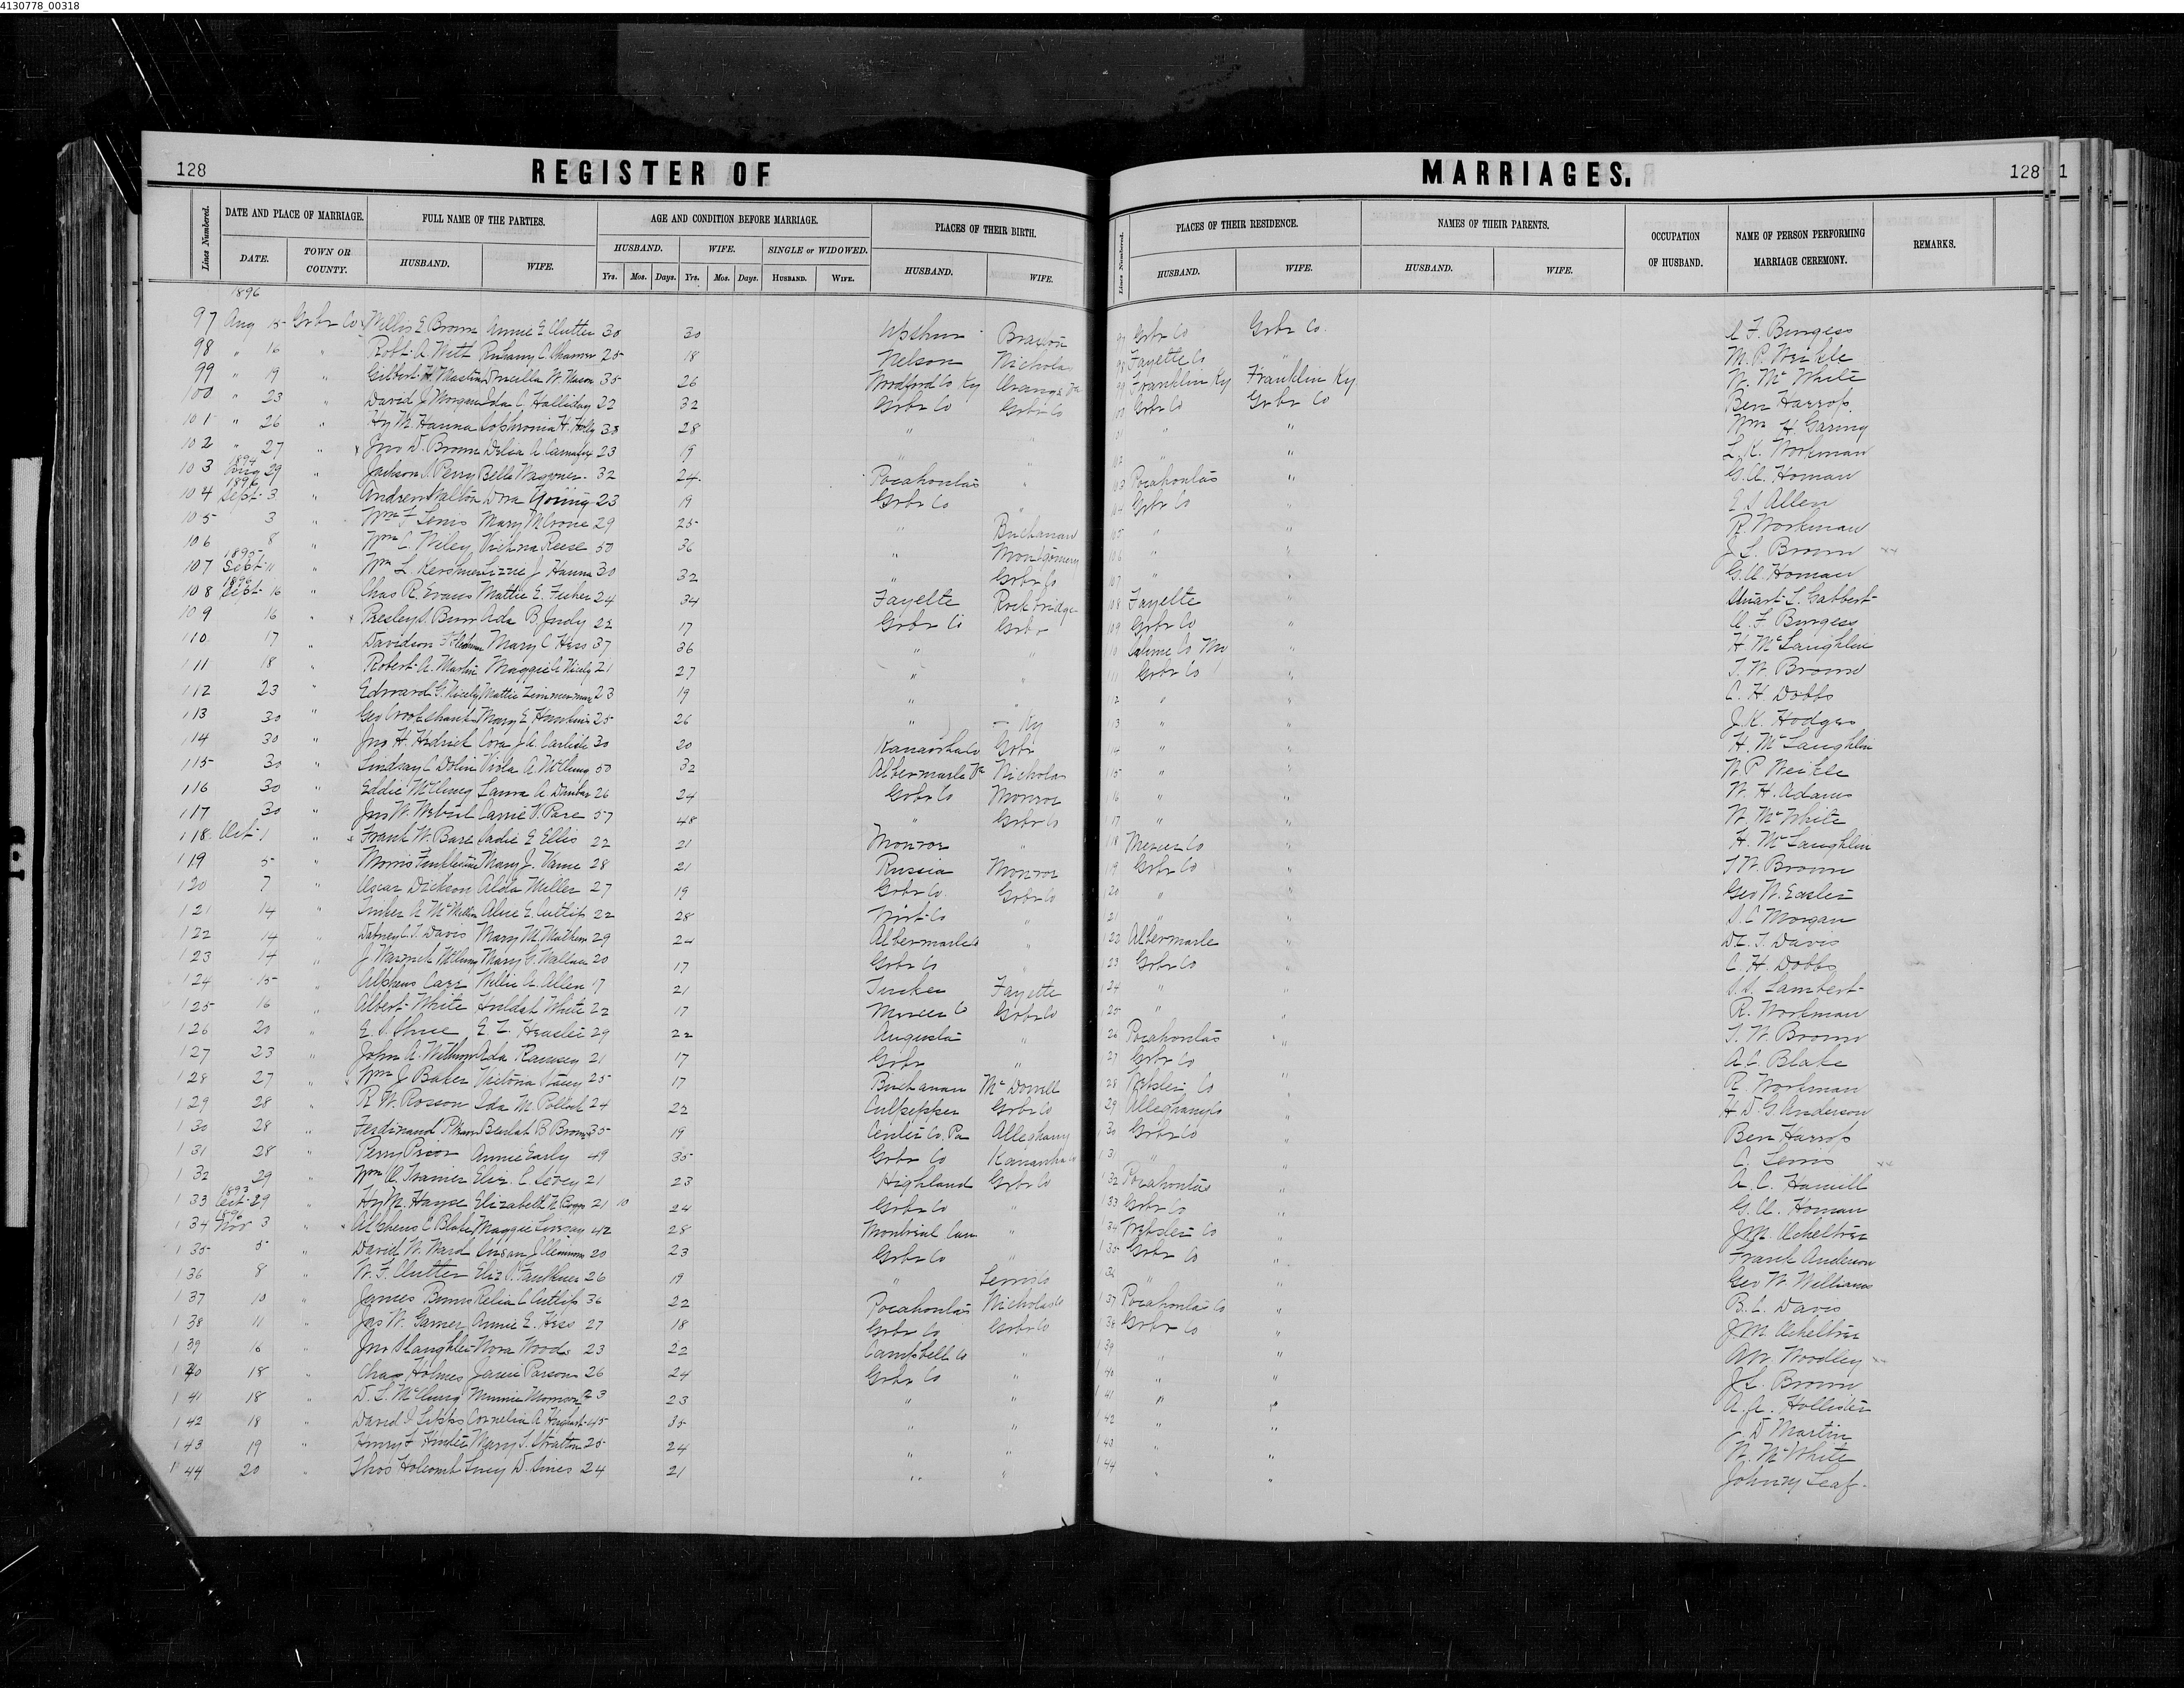 4130778_00318
128 REGISTER OF MARRIAGES. 128 1
Lines Numbered. DATE AND PLACE OF MARRIAGE. FULL NAME OF THE PARTIES. AGE AND CONDITION BEFORE MARRIAGE. PLACES OF THEIR BIRTH. Lines Numbered. PLACES OF THEIR RESIDENCE. NAMES OF THEIR PARENTS. OCCUPATION OF HUSBAND. NAME OF PERSON PERFORMING MARRIAGE CEREMONY. REMARKS.
DATE. TOWN OR COUNTY. HUSBAND. WIFE. HUSBAND. WIFE. SINGLE or WIDOWED. HUSBAND. WIFE. HUSBAND. WIFE. HUSBAND. WIFE.
Yrs. Mos. Days. Yrs. Mos. Days. HUSBAND. WIFE.
1896
97 Aug 15 Grbr Co Willis E Brown Annie E Clutter 30 30 Upshur Braxton 97 Grbr Co Grbr Co. A F. Burgess
98 " 16 " Robt A. Witt C. 25 18 Nelson Nicholas 98 Fayette Co " M. P. Weikle
99 " 19 " Gilbert H. W. Mason 35 26 Woodford Co Ky Orange Va 99 Franklin Ky Franklin Ky W. McWhite
100 " 23 " David J Morgan Ida C. Halliday 22 32 Grbr Co Grbr Co 100 Grbr Co Grbr Co Ben Harrop
101 " 26 " Hy M. Hanna Sophronia H. Holly 38 28 " " " Wm H. Garing
102 " 27 " Jno D. Brown Delia A. 23 19 " " 102 " " L. K. Workman
103 1894 Aug 29 " Jackson Perry Bella Wagoner 32 24 Pocahontas " 103 Pocahontas " G. A. Homan
104 1896 Sept 3 " Andrew Walton Dora Young 23 19 Grbr Co " 104 Grbr Co " E S Allen
105 3 " Wm F Lewis Mary M Crone 29 25 " Buchanan 105 " " R. Workman
106 8 " Wm C. Wiley Reese 50 36 " Montgomery 106 " " J L. Brown
107 1895 Sept 11 " Wm L. Kershner Lizzie J Hanna 30 32 " Grbr Co 107 " " G. A. Homan
108 1896 Sept 16 " Chas R. Evans Mattie E. Fisher 24 34 Fayette Rockbridge 108 Fayette " Stuart L. Gabbert
109 16 " Presley S. Burr Ada B Judy 22 17 Grbr Co Grbr 109 Grbr Co " A. F Burgess
110 17 " Davidson F Mary C Hess 37 36 " " 10 Saline Co Mo " H McLaughlin
111 18 " Robert A. Martin Maggie A Nicely 21 27 " " 111 Grbr Co " T. W. Brown
112 23 " Edward G. Nicely Mattie Zimmerman 23 19 " " 12 " " C. H. Dobbs
113 30 " Geo Crookshanks Mary E Hawkins 25 26 " Ky 13 " " J. K. Hodges
114 30 " Jno H. Hedrick Cora J A. Carlisle 30 20 Kanawha Co Grbr 14 " " H. McLaughlin
115 30 " Lindsay C Dolin Viola A. McClung 50 32 Albermarle Va Nicholas 115 " " W. P Weikle
116 30 " Eddie McClung Laura A. Dunbar 26 24 Grbr Co Monroe 16 " " W. H. Adams
117 30 " Jno W. Carrie V. Pare 57 48 " Grbr Co 17 " " W. McWhite
118 Oct 1 " Frank W. Bare Sadie E Ellis 22 21 Monroe " 118 Mercer Co " H. McLaughlin
119 5 " Morris Mary J. Vance 28 21 Russia Monroe 19 Grbr Co " T W. Brown
120 7 " Oscar Dickson Alda Miller 27 19 Grbr Co. Grbr Co 20 " " Geo W. Easley
121 14 " A. McMillion Alice E. Cutlip 22 28 Wirt Co " 21 " " S. C Morgan
122 14 " Dabney C. T. Davis Mary M. Mathews 29 24 Albermarle " 122 Albermarle " D. T. Davis
123 14 " J. Warwick McClung Mary G. Wallace 20 17 Grbr Co " 23 Grbr Co " C. H. Dobbs
124 15 " Alpheus Carr Willie A. Allen 17 21 Tucker Fayette 124 " " Lambert
125 16 " Albert White Huldah White 22 17 Mercer Co Grbr Co 25 " " R. Workman
126 20 " E. S. Shue E. Z. Heaslet 29 22 Augusta " 26 Pocahontas " T. W. Brown
127 23 " John A. Ada Ramsey 21 17 Grbr " 27 Grbr Co " A. C. Blake
128 27 " Wm J Baker Victoria Stacy 25 17 Buchanan McDowell 28 Webster Co " R Workman
129 28 " R W. Rosson Ida M. Pollock 24 22 Culpepper Grbr Co 29 Alleghany Co " H. D. G Anderson
130 28 " Ferdinand P Beulah B Brown 35 19 Center Co. Pa Alleghany 130 Grbr Co " Ben Harrop
131 28 " Perry Prior Annie Early 49 35 Grbr Co Kanawha Co 131 " " C. Lewis
132 29 " Wm A. Trainer Eliz. C. Sevey 21 23 Highland Grbr Co 132 Pocahontas " A. C. Hamill
133 1893 Oct 29 " Hy M. Hayse Elizabeth N. 21 10 24 Grbr Co " 133 Grbr Co " G. A. Homan
134 1896 Nov 3 " Alpheus C Blake Maggie Livesay 42 28 Montreal Can " 134 Webster Co " J. M. Ocheltree
135 5 " David W. Ward Susan J 20 23 Grbr Co " 135 Grbr Co " Frank Anderson
136 8 " W. F. Clutter Eliz V. Faulkner 26 19 " Lewis Co 36 " " Geo W. Williams
137 10 " James Burns Relia C Cutlip 36 22 Pocahontas Nicholas Co 137 Pocahontas Co " B. C. Davis
138 11 " Jas W. Garner Annie E. Hess 27 18 Grbr Co Grbr Co 38 Grbr Co " J. M. Ocheltree
139 16 " Jno Slaughter Nora Woods 23 22 Campbell Co " 139 " " A. W. Woodley
140 18 " Chas Holmes Janie Parsons 26 24 Grbr Co " 140 " " J. L. Brown
141 18 " D. L. McClung Minnie Morrison 23 23 " " 141 " " A. A. Hollister
142 18 " David S Sibbs Cornelia A. 45 35 " " 142 " " J. D Martin
143 19 " Henry F Hunter Mary S. Stratton 25 24 " " 143 " " W. McWhite
144 20 " Thos Holcomb Lucy D. Sines 24 21 " " 144 " " Johnzy Leaf